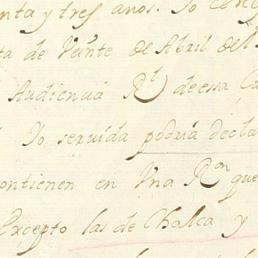 enta y tres anos. Yo
ta de Veinte de Abril del
Audiencia Rl deesa Ca
Yo servida podria decla
contienen en Una Ron que
Excepto las de Chalca y